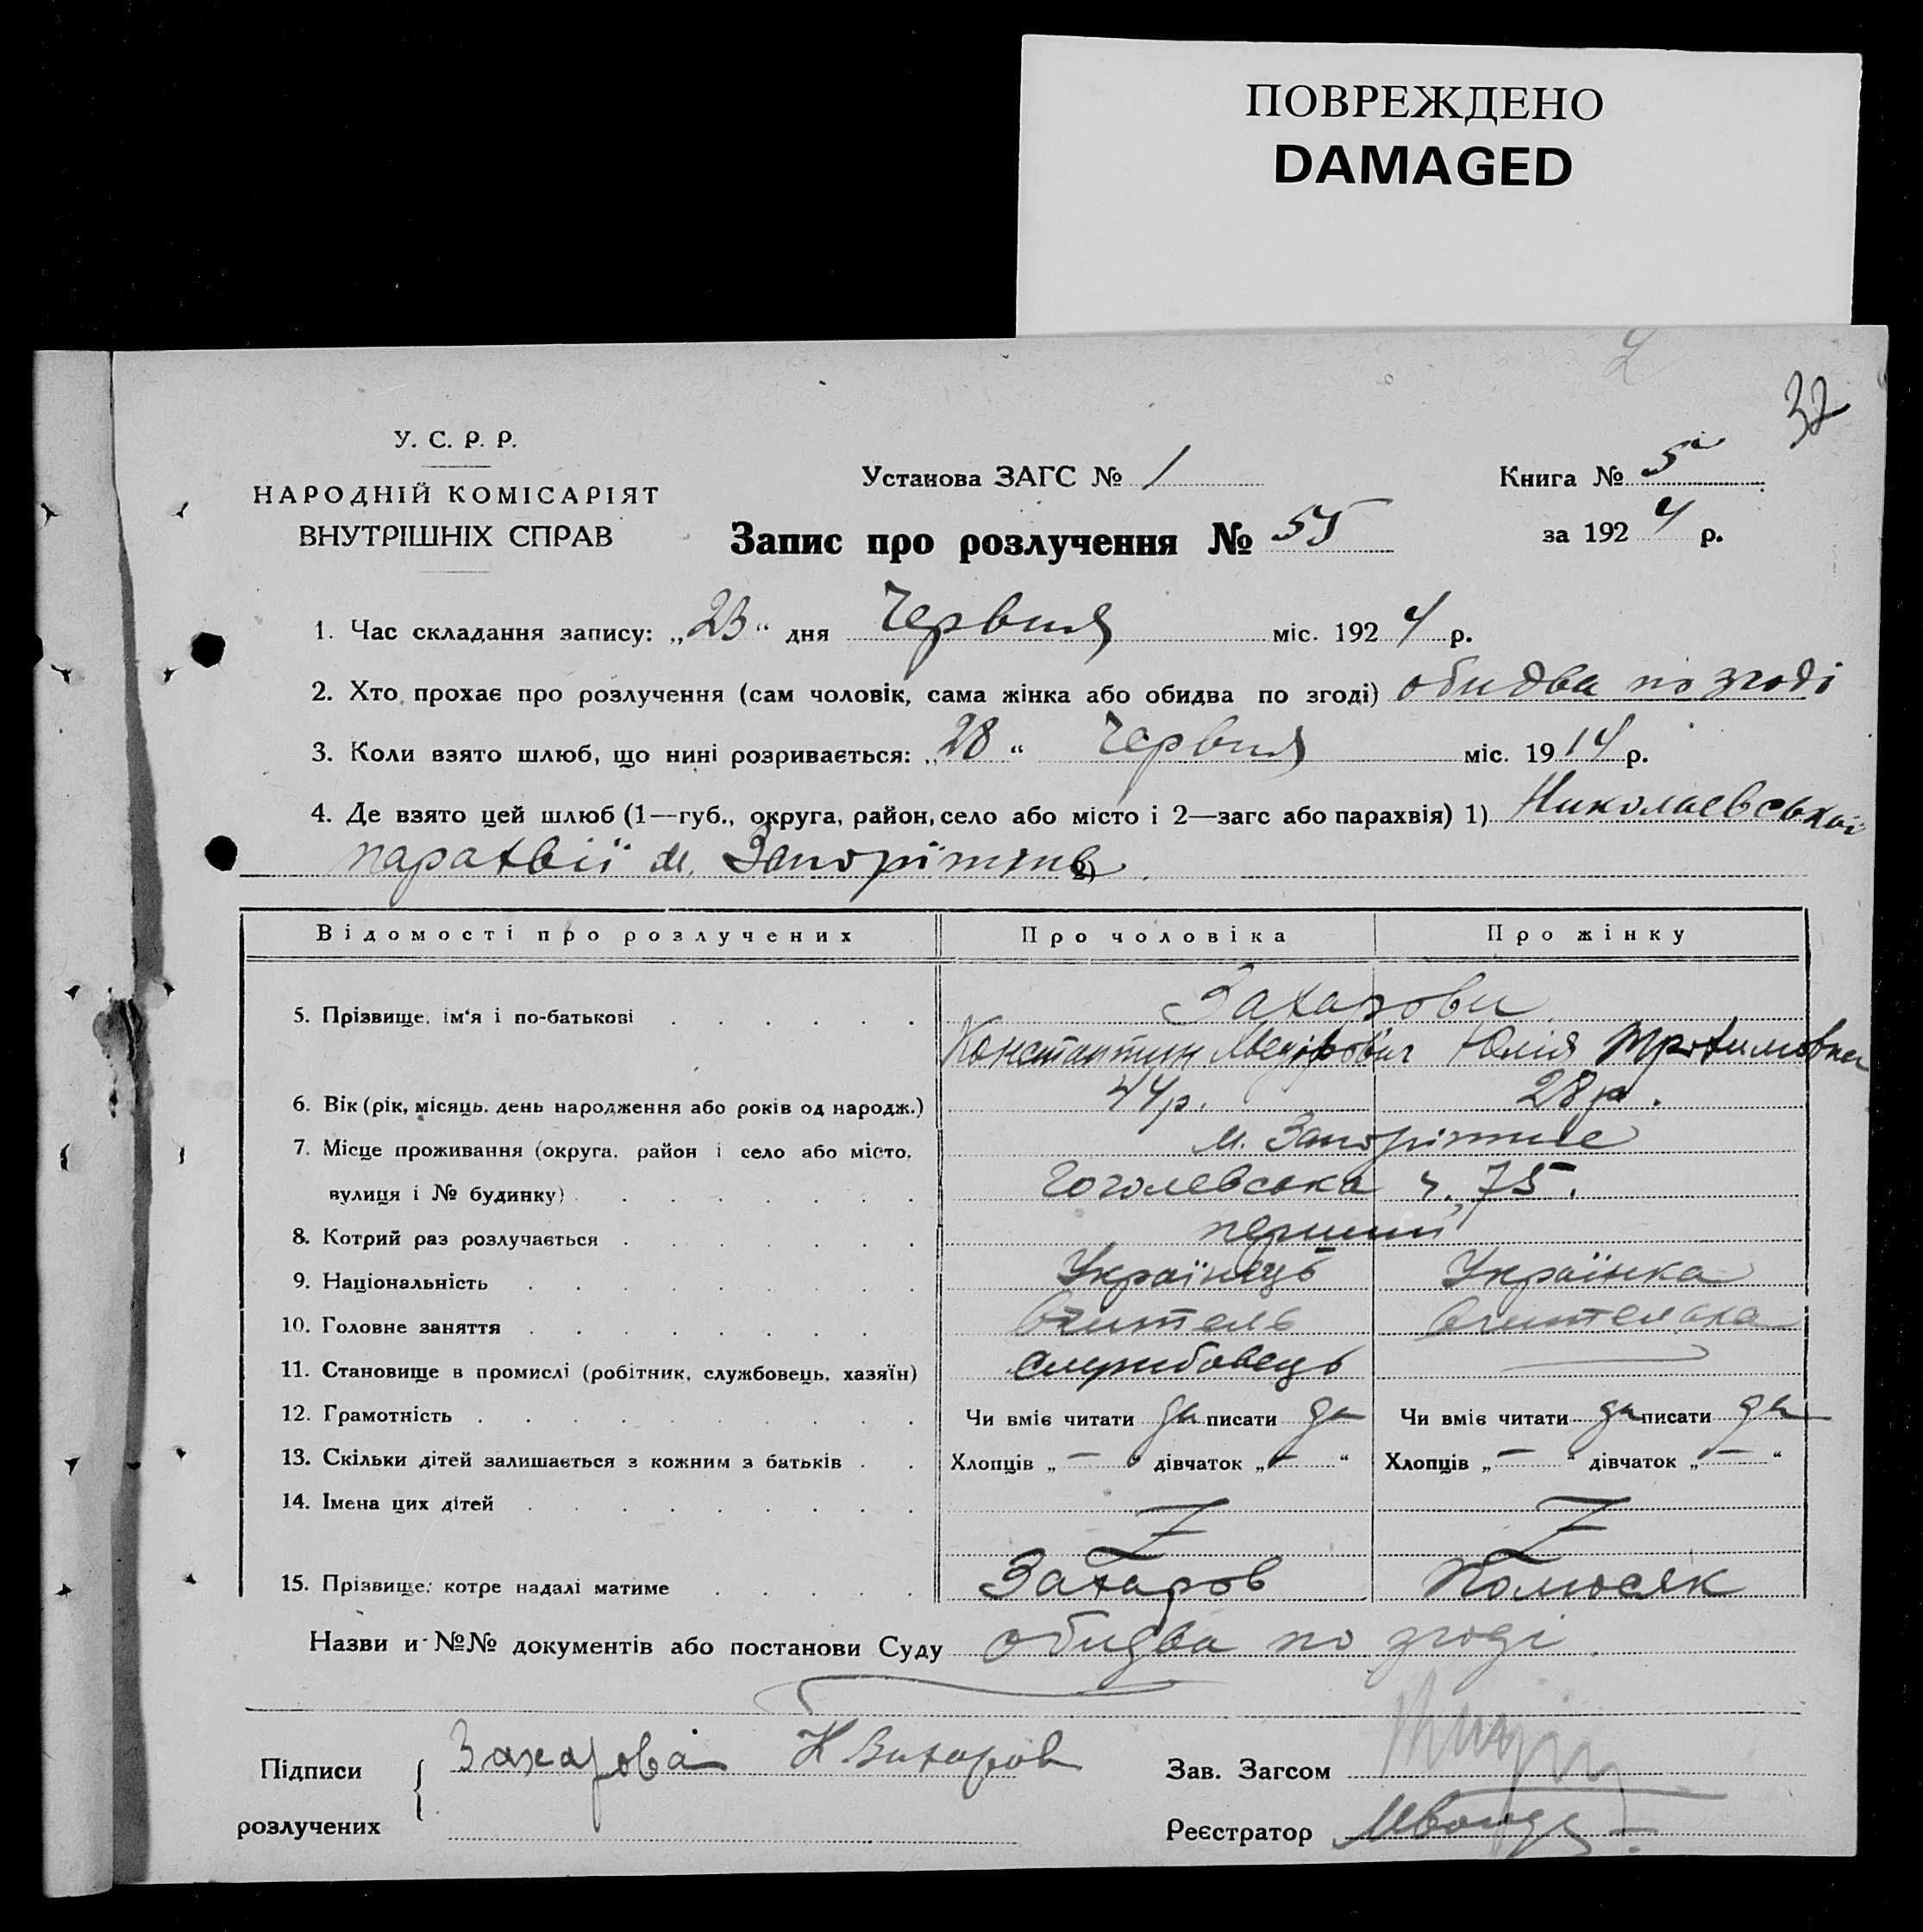 ПОВРЕЖДЕНО
DAMAGED
32
У. С. Р. Р.
НАРОДНІЙ КОМІСАРІЯТ
ВНУТРІШНІХ СПРАВ
Установа ЗАГС № 1
Книга № 5
за 1924 р.
Запис про розлучення № 55
1. Час складання запису: „23“ дня Червня міс. 1924 р.
2. Хто прохає про розлучення (сам чоловік, сама жінка або обидва по згоді) обидва по згоді
3. Коли взято шлюб, що нині розривається: „28“ Червня міс. 1914 р.
4. Де взято цей шлюб (1—губ., округа, район, село або місто і 2—загс або парахвія) 1) Николаевської
парахвії м. Запоріжжя 2)
Відомості про розлучених Про чоловіка Про жінку
5. Прізвище, ім‘я і по-батькові Захарови
Константин Юлія Трохимовна
6. Вік (рік, місяць, день народження або років од народж.) 44р. 28р.
7. Місце проживання (округа, район і село або місто, м. Запоріжжє
вулиця і № будинку) Гоголевська ч. 75.
8. Котрий раз розлучається перший
9. Національність Українець Українка
10. Головне заняття Вчитель Вчителька
11. Становище в промислі (робітник, службовець, хазяїн) Службовець —
12. Грамотність Чи вміє читати да писати да Чи вміє читати да писати да
13. Скільки дітей залишається з кожним з батьків Хлопців „—“ дівчаток „—“ Хлопців „—“ дівчаток „—“
14. Імена цих дітей
15. Прізвище, котре надалі матиме Захаров
Назви и №№ документів або постанови Суду обидва по згоді
Підписи Захарова К Захаров Зав. Загсом
розлучених Реєстратор